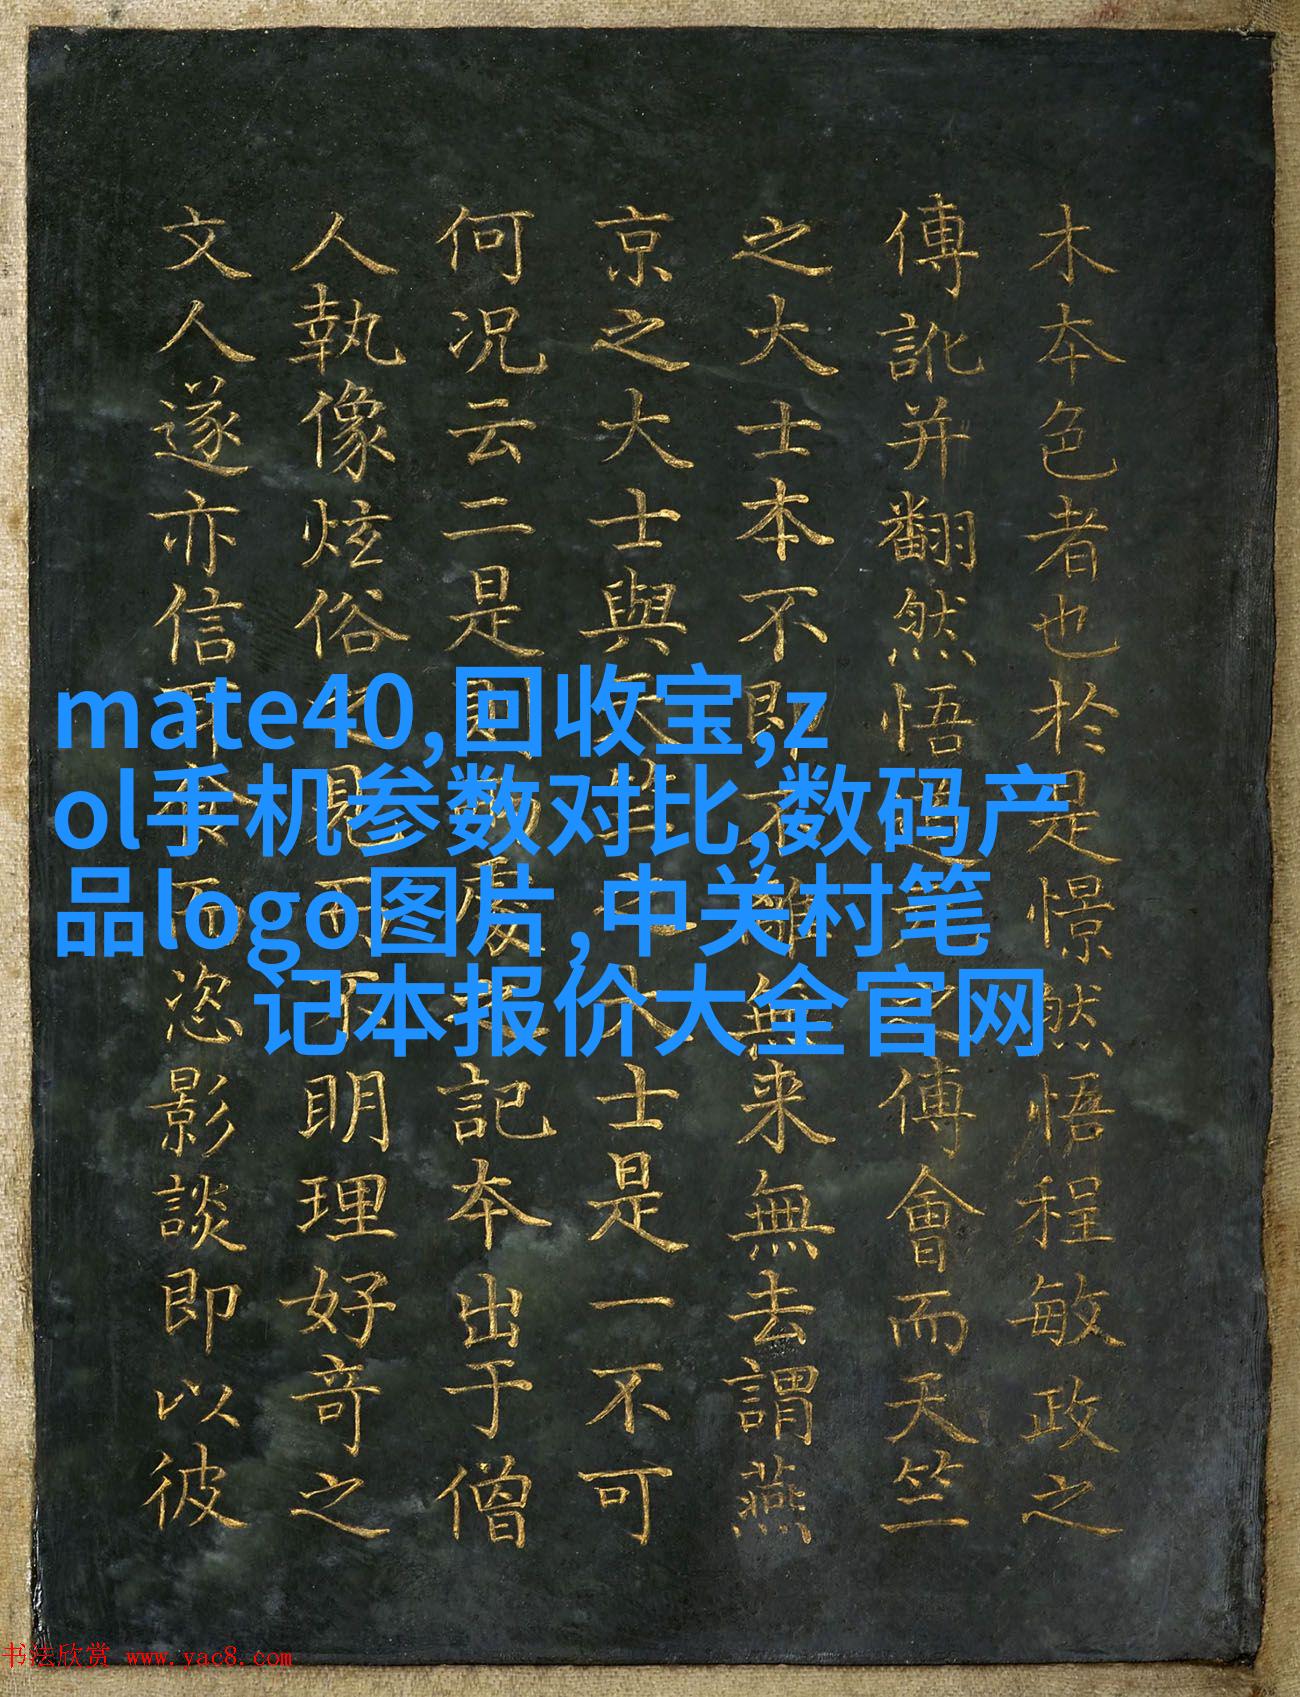 木本色者也於是憬然悟程敏政之
傳訛并翻然悟之傅會而天竺
之大士本不即不離無来無去謂燕
京之大士與天竺之大士是一不可
何况云二是則之記本出于僧
人執像炫俗之見而不明理好奇之
文人遂亦信耳食而恣影談即以彼
mate40,回收宝,z
ol手机参数对比,数码产
品logo图片,中关村笔
记本报价大全官网
书法欣赏 www.yac8.com